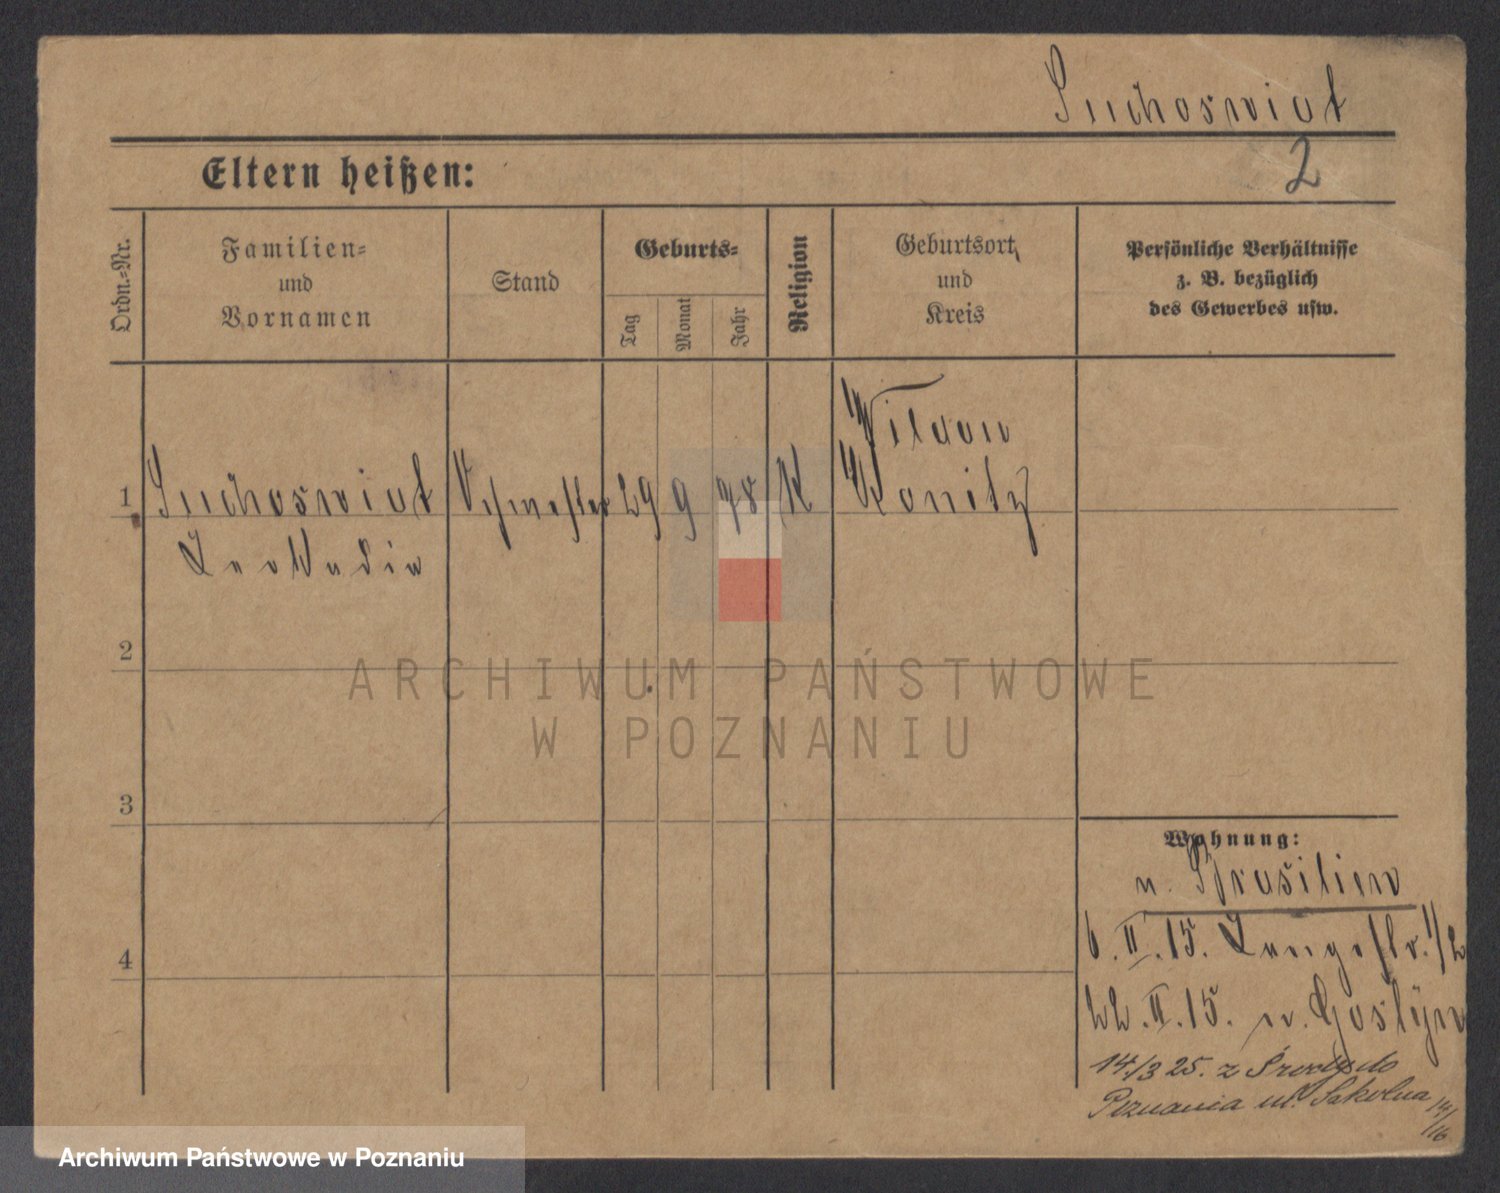 Suchoswiat
2
Eltern heißen:
Ordn.-Nr.
Familien-
und
Vornamen
Stand
Geburts-
Tag
Monat
Jahr
Religion
Geburtsort
und
Kreis
Persönliche Verhältnisse
z. B. bezüglich
des Gewerbes usw.
1
Suchoswiat
Leokadia
Schwester
29
9
98
K
Konitz
2
3
4
Wohnung:
n. Brasilien
6.II.15. Langestr. 1/2
22.II.15. n. Gostyn
14/3 25. z Środy do
Poznania ul. Szkolna 14/
16
ARCHIWUM PAŃSTWOWE
W POZNANIU
Archiwum Państwowe w Poznaniu